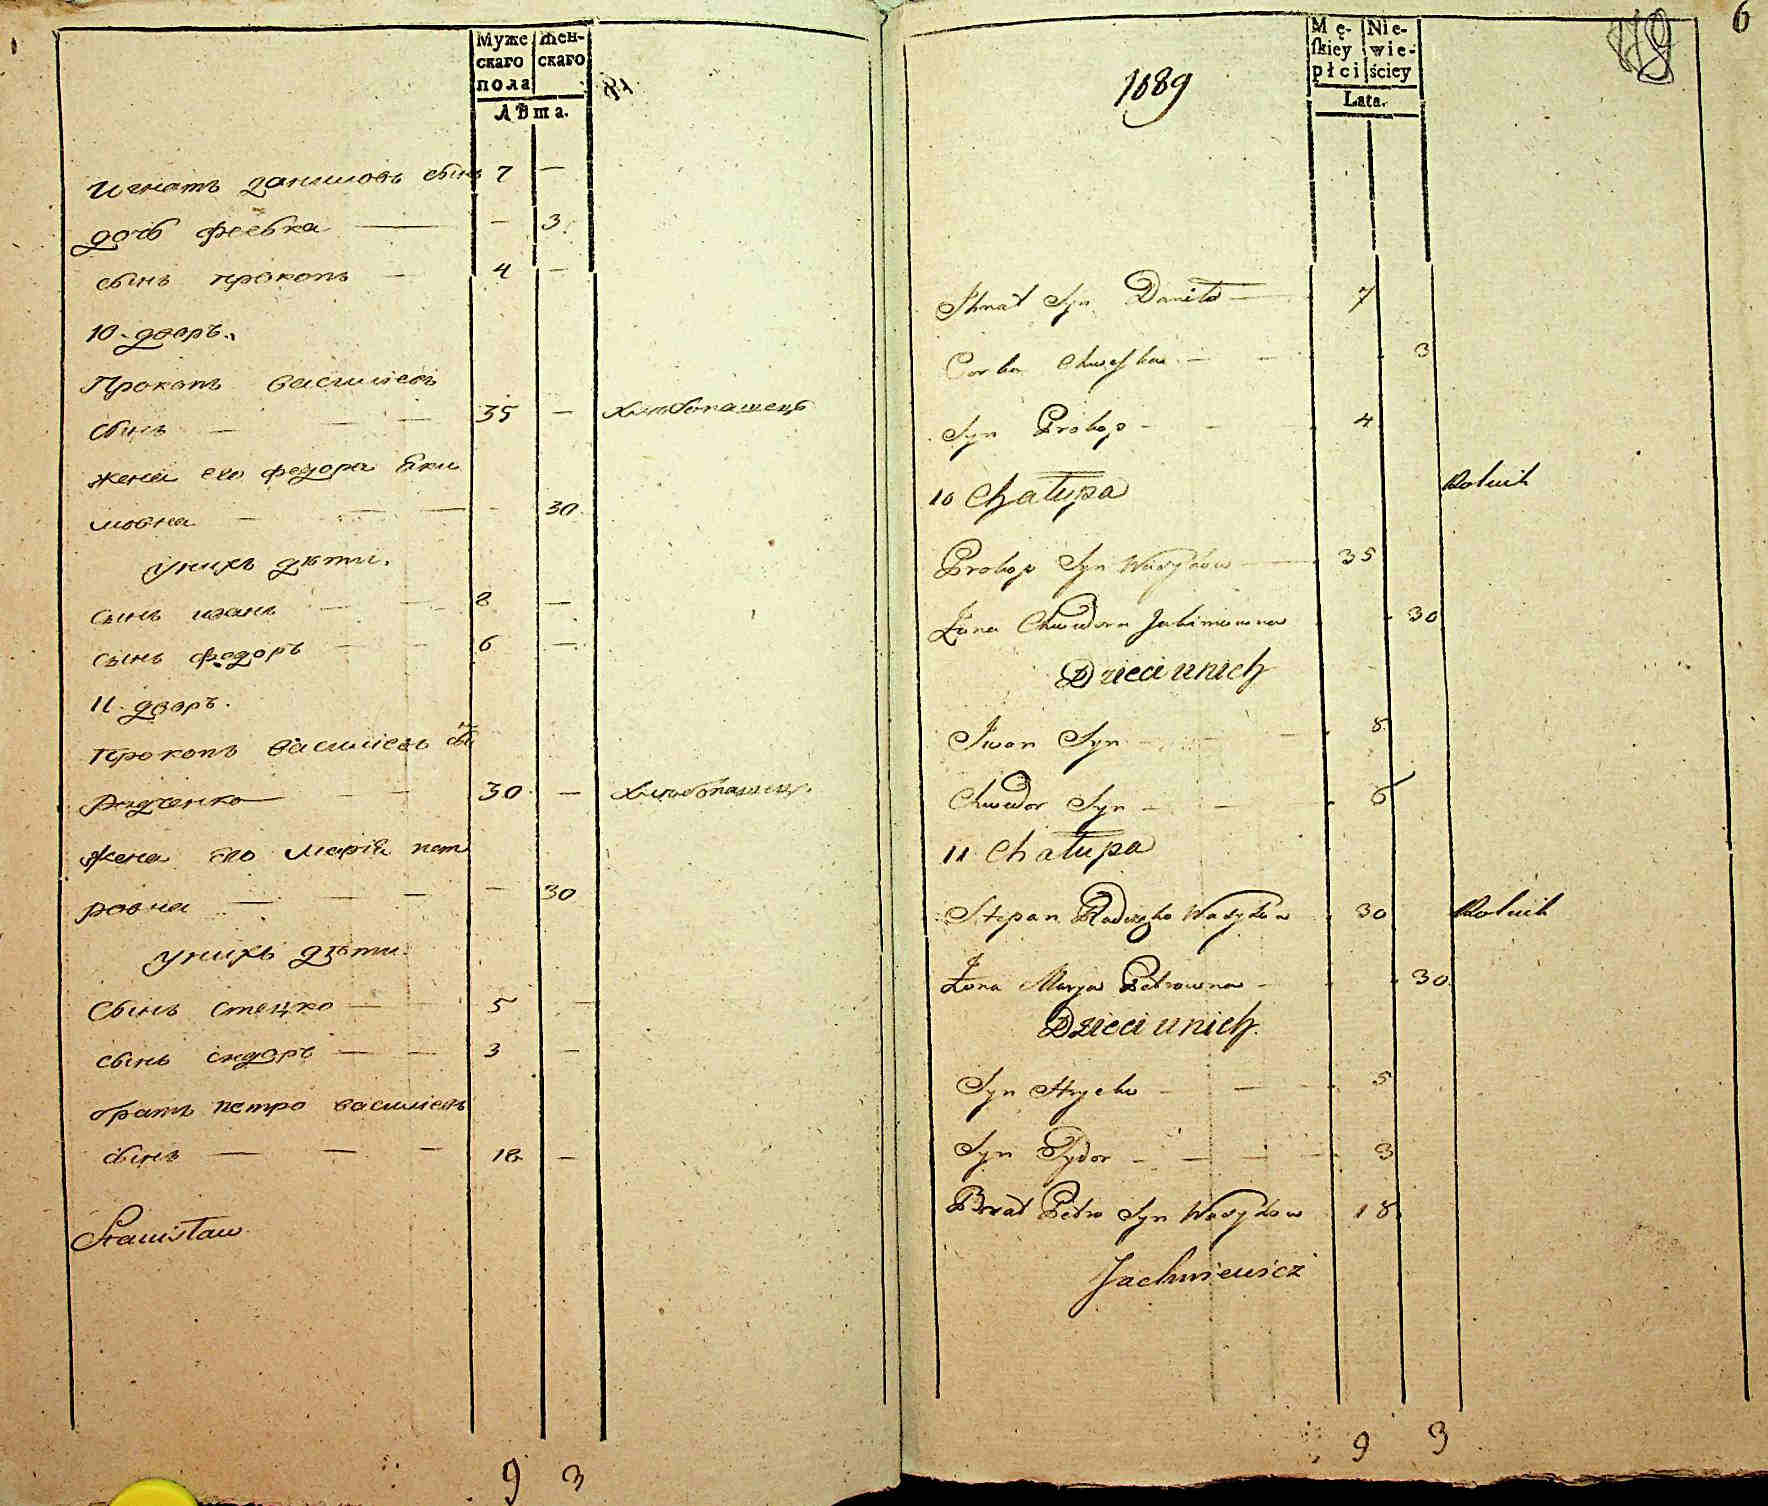 Муже
скаго
пола
Жен-
скаго
Лѣта.
Игнатъ даниловъ сынъ 7 —
дочь фесвка — — 3
сынъ прокопъ — 4 —
10. дворъ.
Прокопъ василіевъ
сынъ — — — 35 — хлѣбопашецъ
жена его федора Яки
мовна — — — — 30
унихъ дѣти.
сынъ иванъ — — 8 —
сынъ федоръ — — 6 —
11. дворъ.
василіевъ сынъ
Радченко — — 30 — хлѣбопашецъ
жена его Марія пет
ровна — — — — 30
унихъ дѣти.
сынъ стецко — 5 —
сынъ сидоръ — — 3 —
братъ петро василіевъ
сынъ — — — 18 —
Stanisław
9 3
6
1889
Mę-
skiey
płci
Nie-
wie-
ściey
Lata.
Ihnat Syn Daniło — 7
Corka Chweska — — 3
Syn Prokop — — 4
10 Chałupa
Rolnik
Prokop Syn Wasylow — 35
Żona Chwedora Jakimowna 30
Dzieci unich
Iwan Syn — — 8
Chwedor Syn — — 6
11 Chałupa
Stepan Radczko Wasylow 30 Rolnik
Żona Marya Petrowna — 30
Dzieci unich
Syn Stycko — — 5
Syn Sydor — — — — 3
Brat Petro Syn Wasylow 18
Jachniewicz
9 3